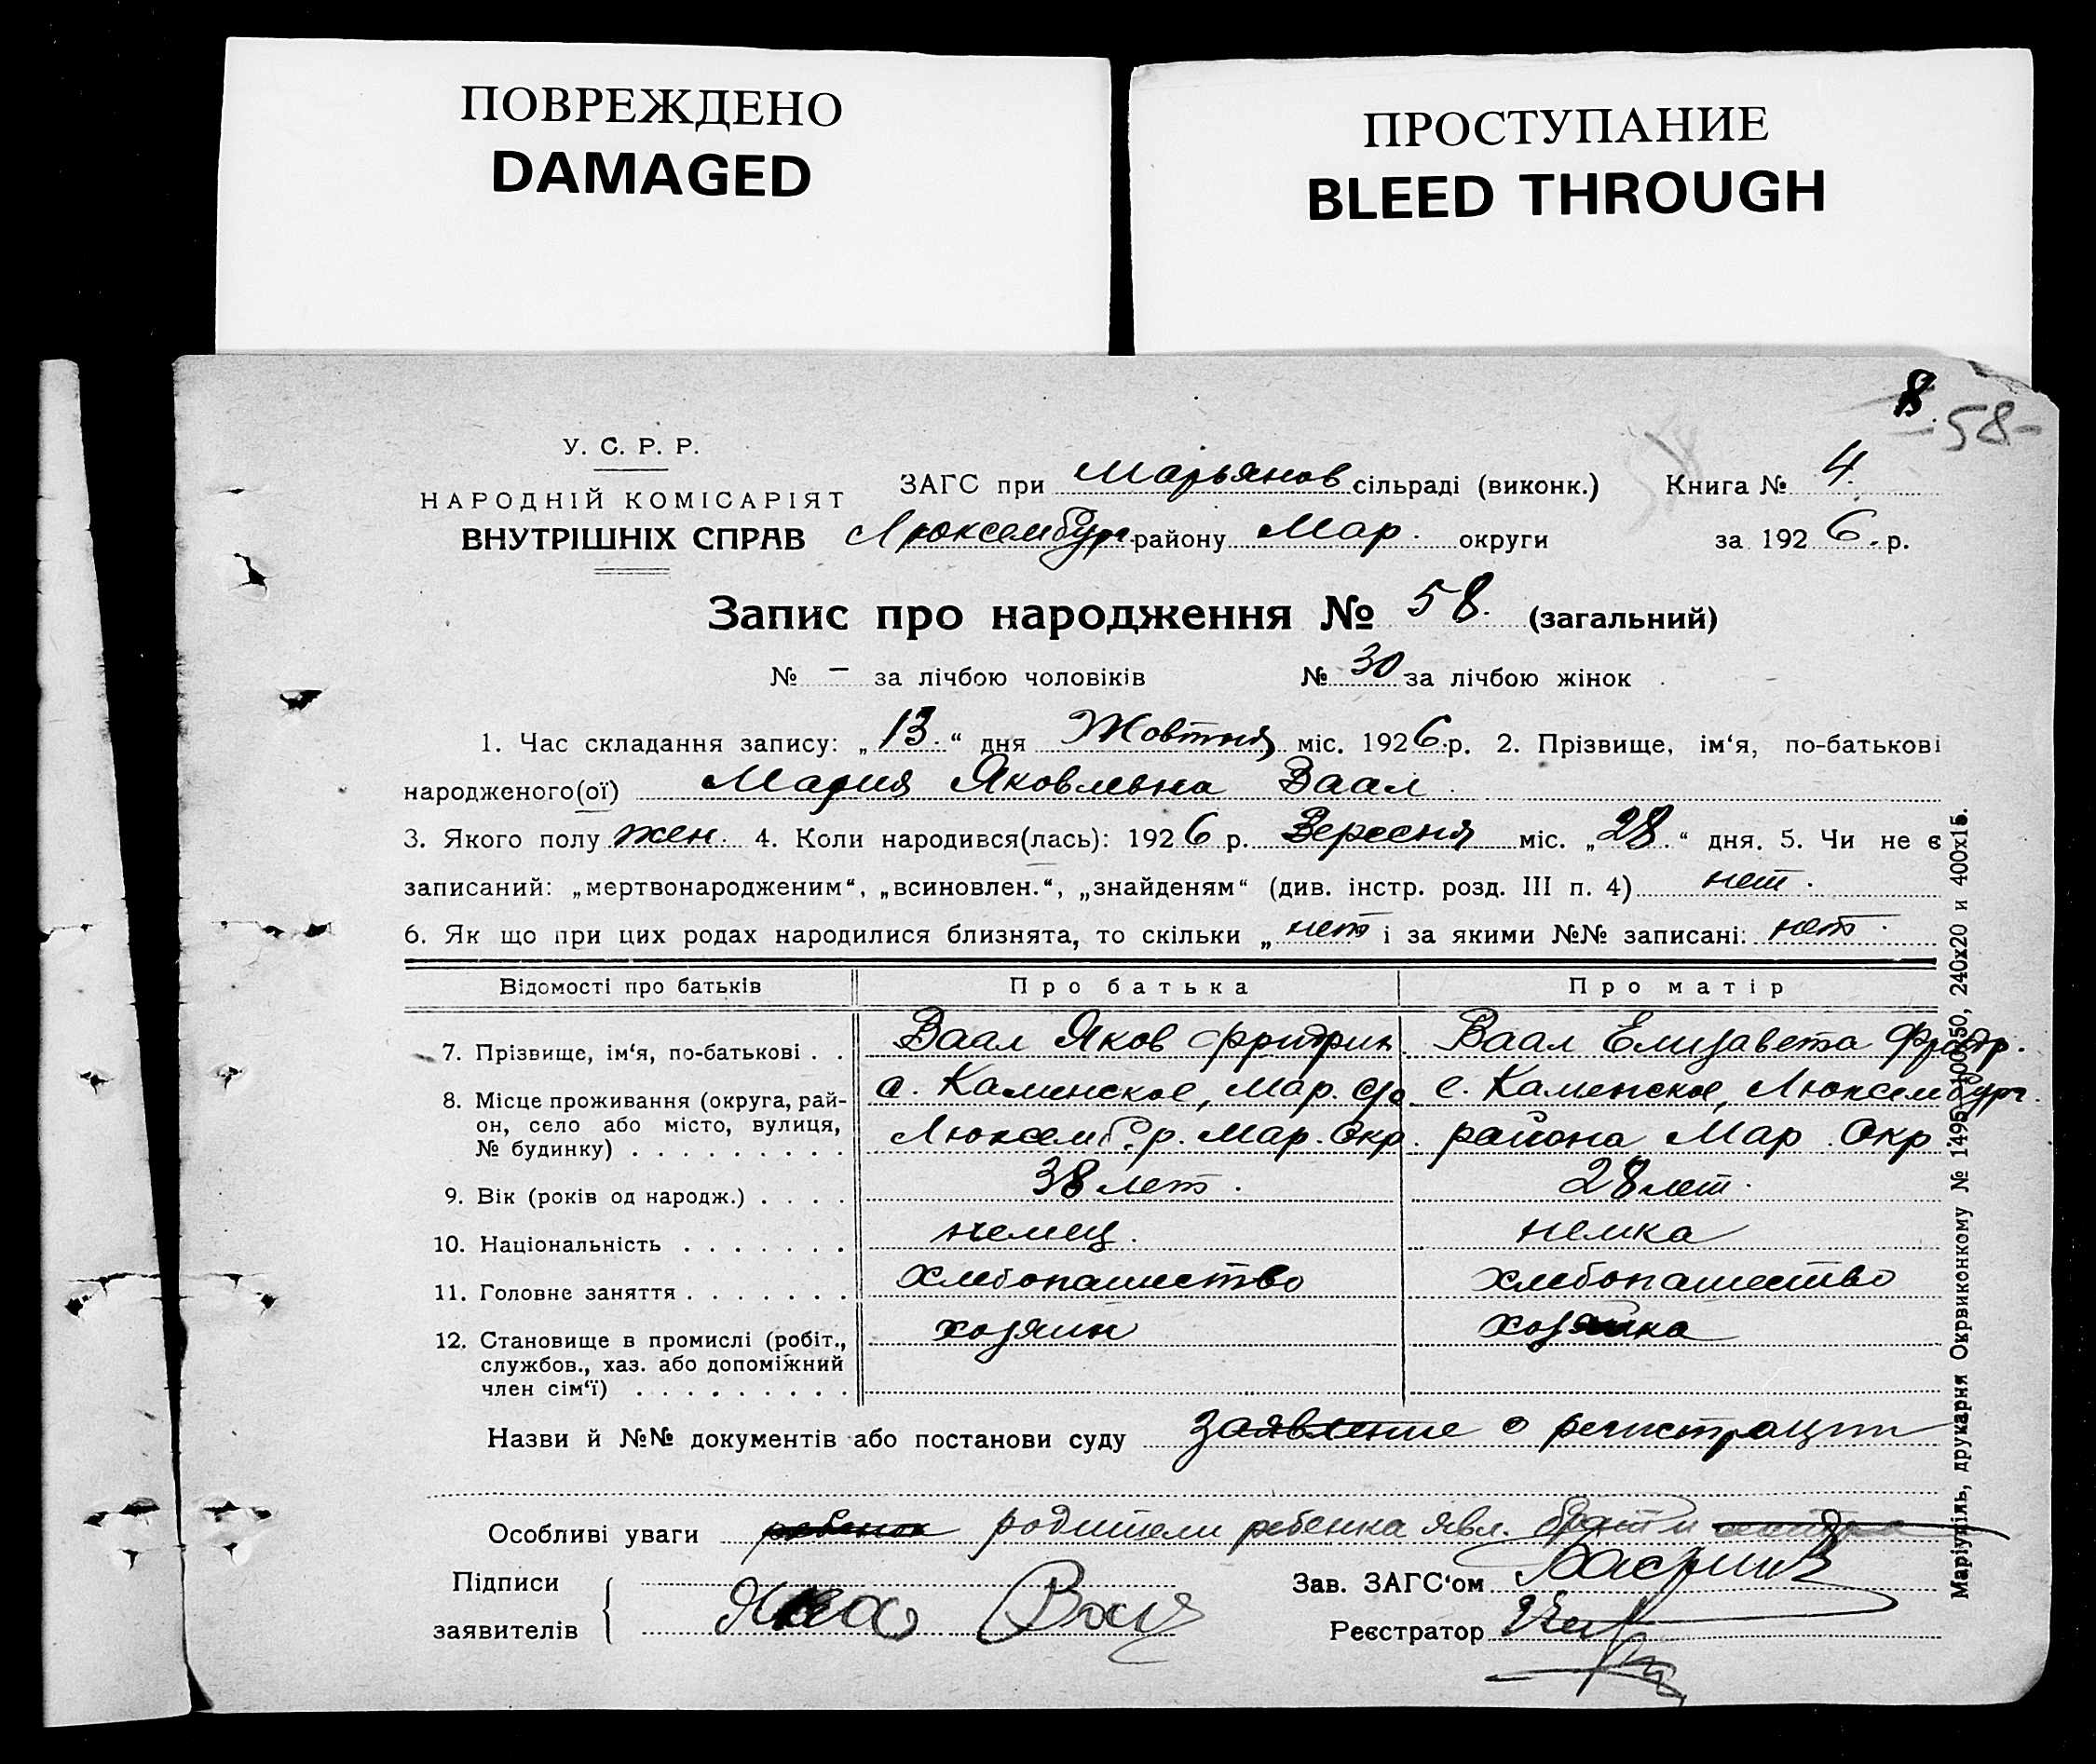 ПОВРЕЖДЕНО
DAMAGED
ПРОСТУПАНИЕ
BLEED THROUGH
8.
58-
У. С. Р. Р.
НАРОДНІЙ КОМІСАРІЯТ
ВНУТРІШНІХ СПРАВ
ЗАГС при Марьянов сільраді (виконк.) Книга № 4.
Люксембург. району Мар. округи за 1926. р.
Запис про народження № 58. (загальний)
№ – за лічбою чоловіків № 30 за лічбою жінок
1. Час складання запису: „13.“ дня Жовтня міс. 1926 р. 2. Прізвище, ім‘я, по-батькові
народженого(ої) Мария Яковлевна Ваал.
3. Якого полу жен. 4. Коли народився(лась): 1926 р. Вересня міс. „28.“ дня. 5. Чи не є
записаний: „мертвонародженим“, „всиновлен.“, „знайденям“ (див. інстр. розд. III п. 4) нет.
6. Як що при цих родах народилися близнята, то скільки „ нет і за якими №№ записані: нет.
Відомості про батьків Про батька Про матір
7. Прізвище, ім‘я, по-батькові . . Ваал Яков Фридрих Ваал Елизавета Фридр.
8. Місце проживання (округа, рай- с. Каменское, Мар. с/с с. Каменское, Люксембург.
он, село або місто, вулиця, Люксемб. р. Мар. Окр. района Мар. Окр
№ будинку) . . . . . . . . .
9. Вік (років од народж.) . . . . 38 лет. 28 лет.
10. Національність . . . . . . . немец. немка
11. Головне заняття . . . . . . . хлебопашество хлебопашество
12. Становище в промислі (робіт., хозяин хозяйка
службов., хаз. або допоміжний
член сім‘ї) . . . . . . . . .
Назви й №№ документів або постанови суду Заявление о регистрации
Особливі уваги ребенок родители ребенка явл.
Підписи
заявителів
Зав. ЗАГС‘ом
Реєстратор
Маріупіль, друкарня Окрвиконкому № 1495—10050, 240х20 и 400х15.